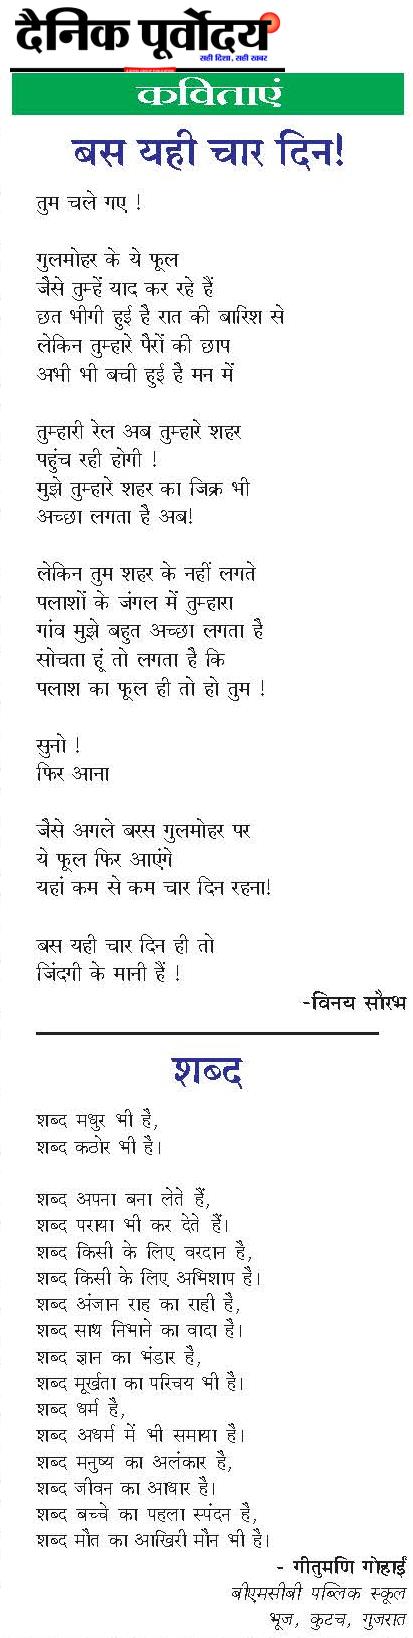 दैनिक पूर्वोदय
सही दिशा, सही खबर
कविताएं
बस यही चार दिन!
तुम चले गए !
गुलमोहर के ये फूल
जैसे तुम्हें याद कर रहे हैं
छत भीगी हुई है रात की बारिश से
लेकिन तुम्हारे पैरों की छाप
अभी भी बची हुई है मन में
तुम्हारी रेल अब तुम्हारे शहर
पहुंच रही होगी !
मुझे तुम्हारे शहर का जिक्र भी
अच्छा लगता है अब!
लेकिन तुम शहर के नहीं लगते
पलाशों के जंगल में तुम्हारा
गांव मुझे बहुत अच्छा लगता है
सोचता हूं तो लगता है कि
पलाश का फूल ही तो हो तुम !
सुनो !
फिर आना
जैसे अगले बरस गुलमोहर पर
ये फूल फिर आएंगे
यहां कम से कम चार दिन रहना!
बस यही चार दिन ही तो
जिंदगी के मानी हैं !
-विनय सौरभ
शब्द
शब्द मधुर भी है,
शब्द कठोर भी है।
शब्द अपना बना लेते हैं,
शब्द पराया भी कर देते हैं।
शब्द किसी के लिए वरदान है,
शब्द किसी के लिए अभिशाप है।
शब्द अंजान राह का राही है,
शब्द साथ निभाने का वादा है।
शब्द ज्ञान का भंडार है,
शब्द मूर्खता का परिचय भी है।
शब्द धर्म है,
शब्द अधर्म में भी समाया है।
शब्द मनुष्य का अलंकार है,
शब्द जीवन का आधार है।
शब्द बच्चे का पहला स्पंदन है,
शब्द मौत का आखिरी मौन भी है।
- गीतुमणि गोहाईं
बीएमसीबी पब्लिक स्कूल
भूज, कुटच, गुजरात